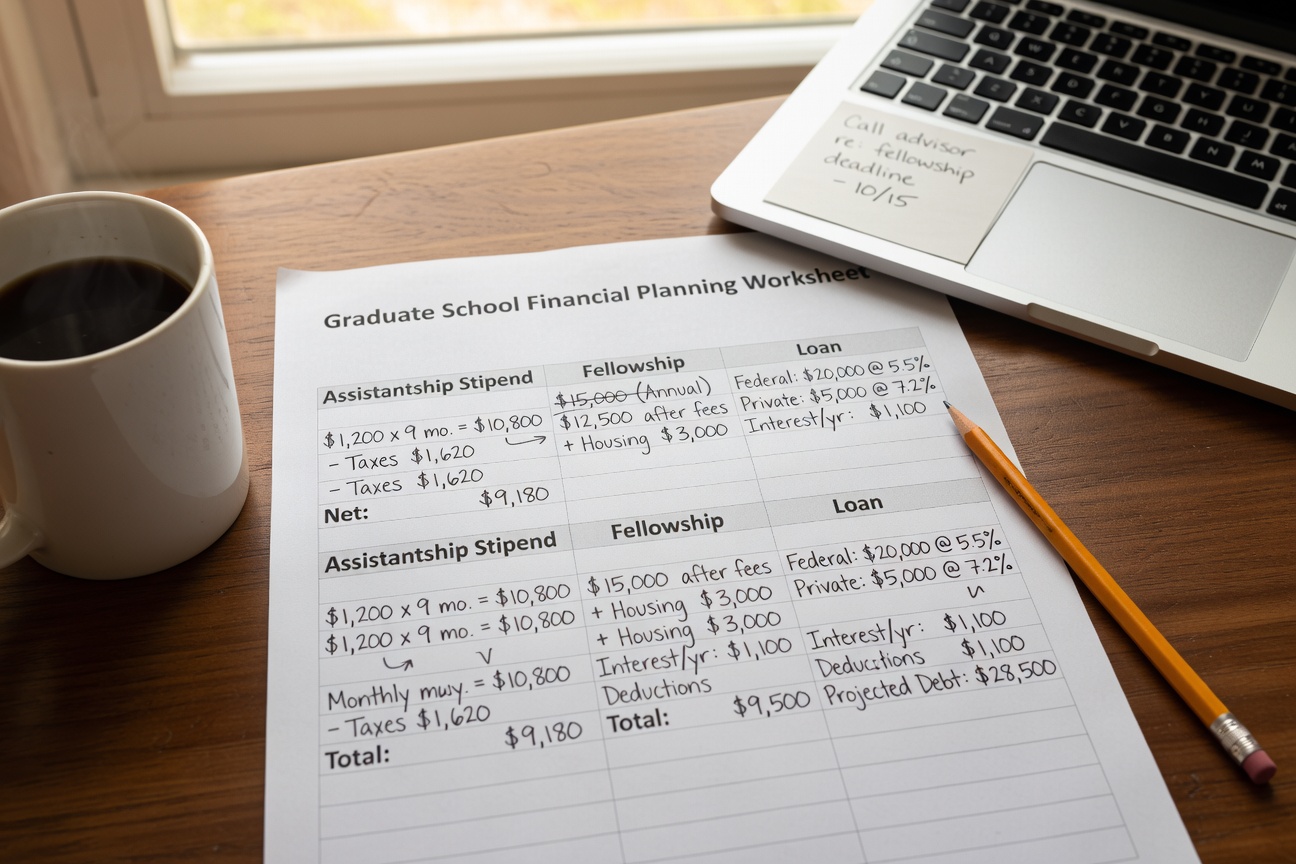 Call advisor
re: fellowship
deadline
- 10/15
Graduate School Financial Planning Worksheet
Assistantship Stipend
$1,200 x 9 mo. = $10,800
- Taxes $1,620
- Taxes $1,620
Net: $9,180
Fellowship
$15,000 (Annual)
$12,500 after fees
+ Housing $3,000
Loan
Federal: $20,000 @ 5.5%
Private: $5,000 @ 7.2%
Interest/yr: $1,100
Assistantship Stipend
$1,200 x 9 mo. = $10,800
$1,200 x 9 mo. = $10,800
Monthly = $10,800
- Taxes $1,620
$9,180
Total:
Fellowship
$15,000 after fees
+ Housing $3,000
+ Housing $3,000
Interest/yr: $1,100
Deductions
Total: $9,500
Loan
Federal: $20,000 @ 5.5%
Private: $5,000 @ 7.2%
Interest/yr: $1,100
$1,100
Projected Debt: $28,500